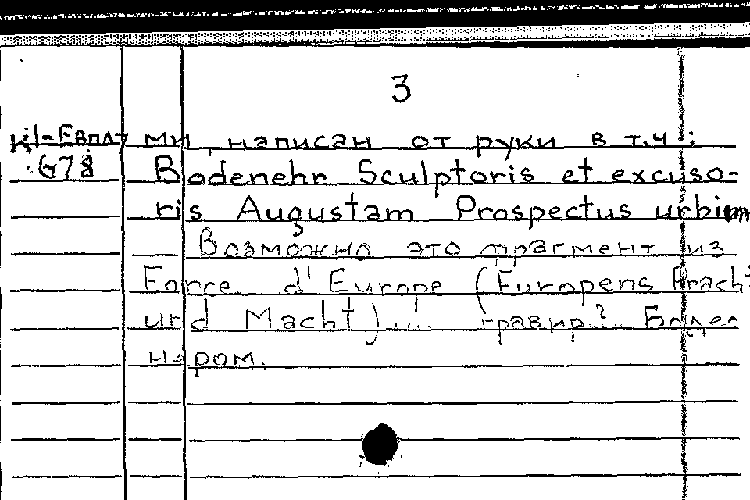 3
ми, написан от руки в т.ч.:
G78 Bodenehr Sculptoris et excuso-
ris Augustam Prospectus urbium
Возможно это фрагмент из
Force d'Europe (Europens Pracht
und Macht) гравир. Боде
нером.